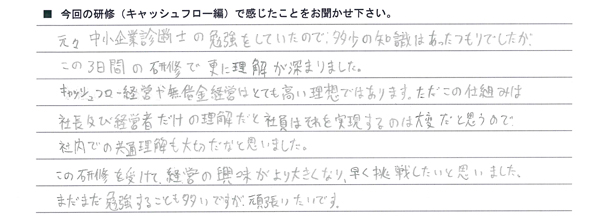 ■ 今回の研修（キャッシュフロー編）で感じたことをお聞かせ下さい。
元々中小企業診断士の勉強をしていたので、多少の知識はあったつもりでしたが、
この3日間の研修で更に理解が深まりました。
キャッシュフロー経営や無借金経営はとても高い理想ではあります。ただこの仕組みは
社長及び経営者だけの理解だと社員はそれを実現するのは大変だと思うので、
社内での共通理解も大切だなと思いました。
この研修を受けて、経営の興味がより大きくなり、早く挑戦したいと思いました、
まだまだ勉強することも多いですが、頑張りたいです。